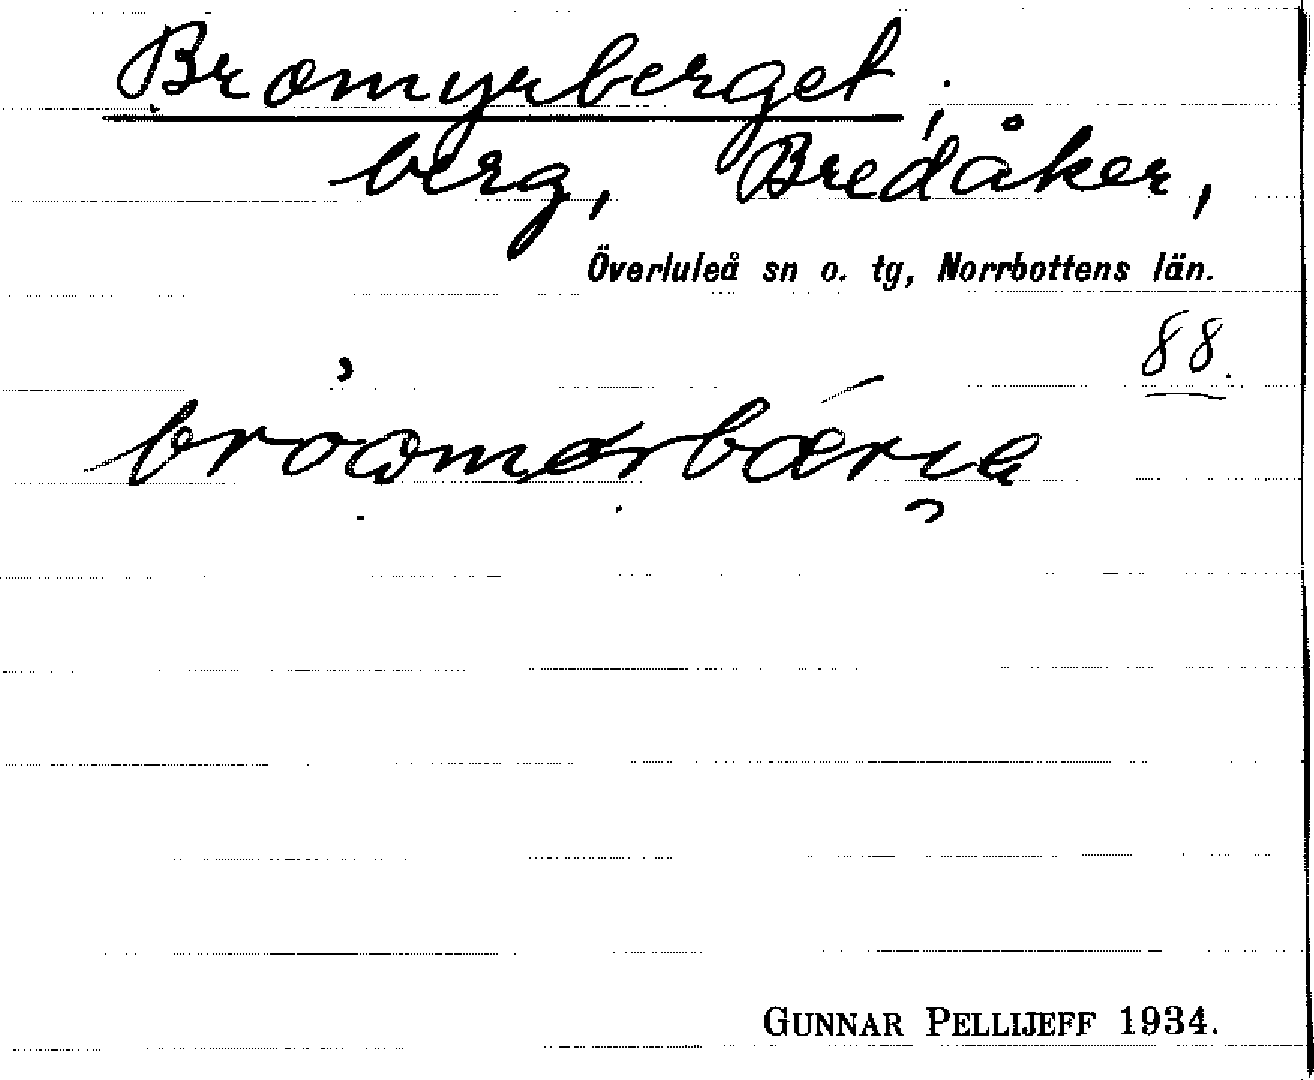 Bromyrberget,
berg, Bredåker,
Överluleå sn o. tg, Norrbottens län.
88.
GUNNAR PELLIJEFF 1934.